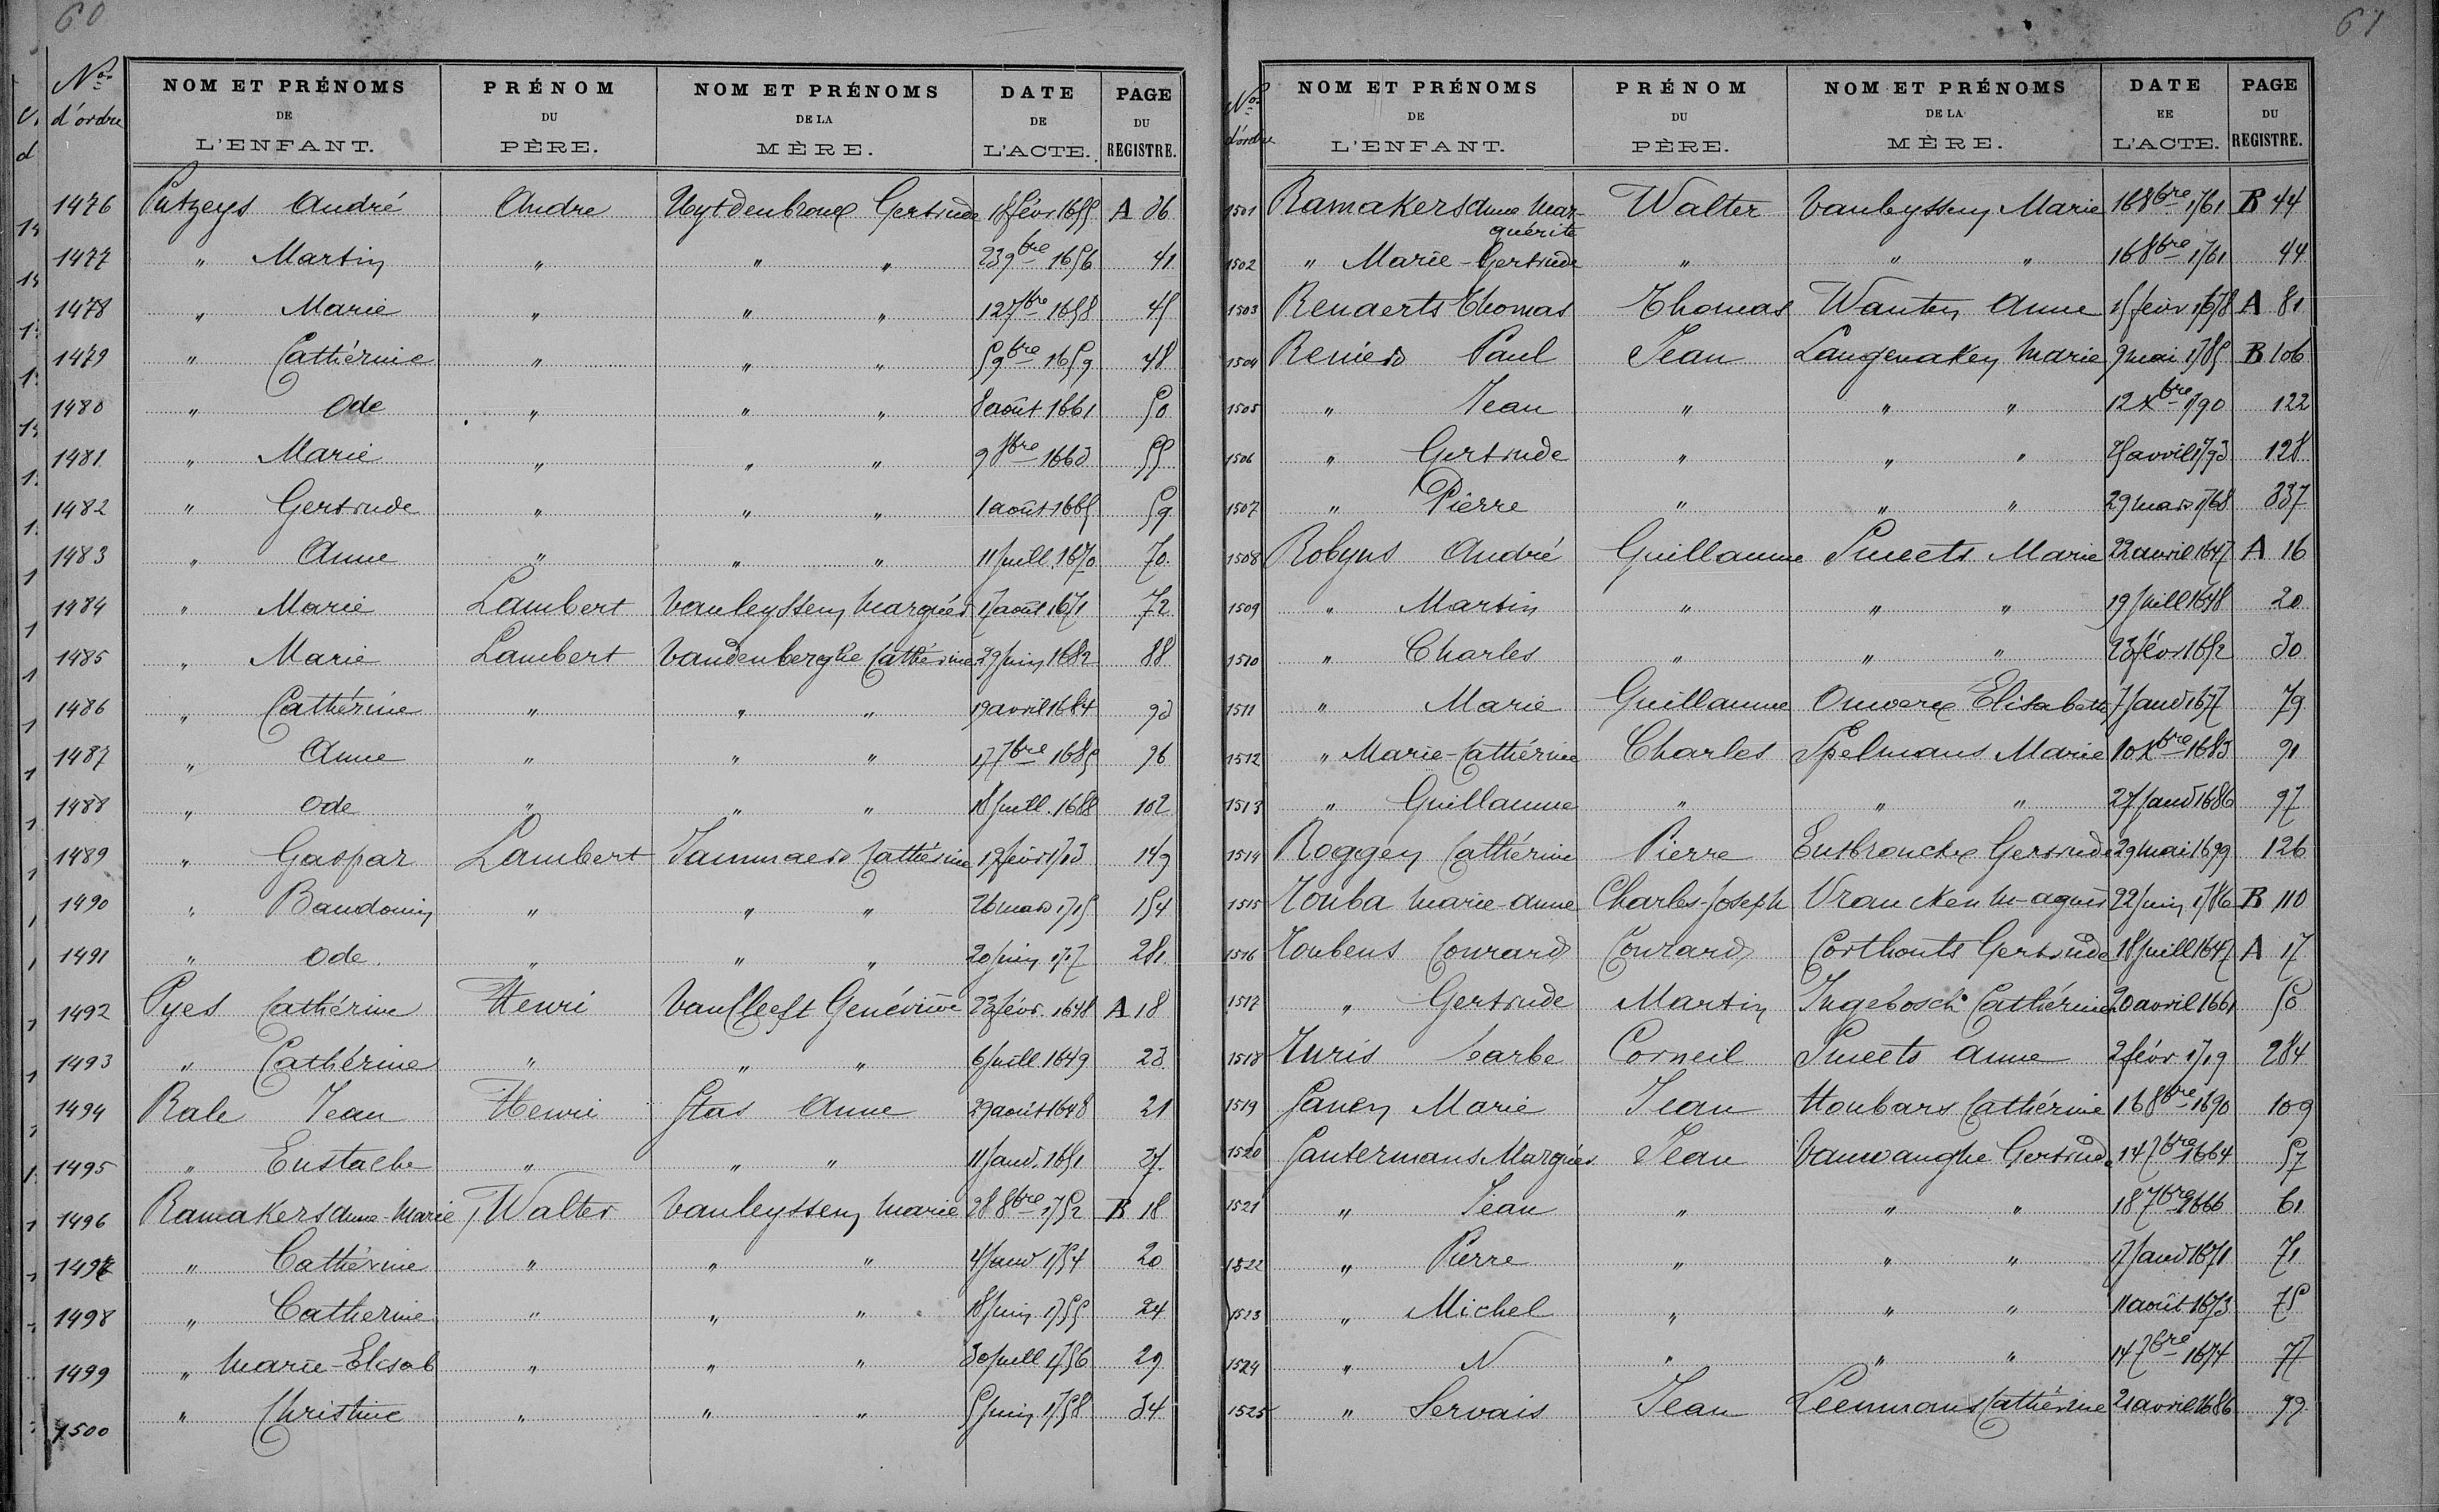 60
Nos d'ordre | NOM ET PRÉNOMS DE L'ENFANT. | PRÉNOM DU PÈRE. | NOM ET PRÉNOMS DE LA MÈRE. | DATE DE L'ACTE. | PAGE DU REGISTRE.
1476 Putzeys André | Andre | Uytdenbroux Gertrude | 18 févr 1655 | A 36
1477 " Martin | " | " " | 23 9bre 1656 | 41
1478 " Marie | " | " " | 12 7bre 1658 | 45
1479 " Cathérine | " | " " | 5 9bre 1659 | 48
1480 " Ode | " | " " | 8 août 1661 | 50
1481 " Marie | " | " " | 9 8bre 1663 | 55
1482 " Gertrude | " | " " | 1 août 1665 | 59
1483 " Anne | " | " " | 11 juill. 1670 | 70
1484 " Marie | Lambert | Vanleyssen Marguér | 17 août 1671 | 72
1485 " Marie | Lambert | Vandenberghe Cathérine | 29 juin 1682 | 88
1486 " Cathérine | " | " " | 19 avril 1684 | 93
1487 " Anne | " | " " | 17 7bre 1685 | 96
1488 " Ode | " | " " | 18 juill. 1688 | 102
1489 " Gaspar | Lambert | Jammaers Cathérine | 19 févr 1713 | 149
1490 " Baudouin | " | " " | 26 mars 1715 | 154
1491 " Ode | " | " " | 20 juin 1717 | 281
1492 Pyes Cathérine | Henri | VanCleeft Genéviève | 23 févr. 1648 | A 18
1493 " Cathérine | " | " " | 6 juill 1649 | 23
1494 Rale Jean | Henri | Stas Anne | 29 août 1648 | 21
1495 " Eustache | " | " " | 11 janv. 1651 | 27
1496 Ramakers Anne-Marie | Walter | Vanleyssen Marie | 28 8bre 1752 | B 18
1497 " Cathérine | " | " " | 4 janv 1754 | 20
1498 " Catherine | " | " " | 18 juin 1755 | 24
1499 " Marie-Elisab | " | " " | 30 juill 1756 | 29
1500 " Christine | " | " " | 5 juin 1758 | 34
61
Nos d'ordre | NOM ET PRÉNOMS DE L'ENFANT. | PRÉNOM DU PÈRE. | NOM ET PRÉNOMS DE LA MÈRE. | DATE EE L'ACTE. | PAGE DU REGISTRE.
1501 Ramakers Anne Mar- | Walter | Vanleyssen Marie | 16 8bre 1761 | B 44
guérite
1502 " Marie-Gertrude | " | " " | 16 8bre 1761 | 44
1503 Renaerts Thomas | Thomas | Wanten Anne | 15 févr 1678 | A 81
1504 Reniers Paul | Jean | Langenaken Marie | 9 mai 1785 | B 106
1505 " Jean | " | " " | 12 Xbre 1790 | 122
1506 " Gertrude | " | " " | 25 avril 1793 | 128
1507 " Pierre | " | " " | 29 mars 1768 | 337
1508 Robyns André | Guillaume | Smeets Marie | 22 avril 1647 | A 16
1509 " Martin | " | " " | 19 juill 1648 | 20
1510 " Charles | " | " " | 23 févr 1652 | 30
1511 " Marie | Guillaume | Onwerx Elisabeth | 7 janv 1677 | 79
1512 " Marie-Cathérine | Charles | Spelmans Marie | 10 Xbre 1683 | 91
1513 " Guillaume | " | " " | 27 janv 1686 | 97
1514 Roggen Cathérine | Pierre | Eusbrouckx Gertrude | 29 mai 1699 | 126
1515 Rouba Marie-Anne | Charles-Joseph | Vrancken M-agnès | 22 juin 1786 | B 110
1516 Roubens Conrard | Conrard | Corthouts Gertrude | 18 juill 1647 | A 17
1517 " Gertrude | Martin | Ingebosch Cathérine | 20 avril 1661 | 50
1518 Ruris barbe | Corneil | Smeets Anne | 2 févr 1719 | 284
1519 Sanen Marie | Jean | Houbars Cathérine | 16 8bre 1690 | 109
1520 Santermans Marguér. | Jean | Vanwanghe Gertrude | 14 7bre 1664 | 57
1521 " Jean | " | " " | 18 7bre 1666 | 61
1522 " Pierre | " | " " | 17 janv 1671 | 71
1523 " Michel | " | " " | 11 août 1673 | 75
1524 " N | " | " " | 14 7bre 1674 | 77
1525 " Servais | Jean | Leenmans Cathérine | 21 avril 1686 | 99